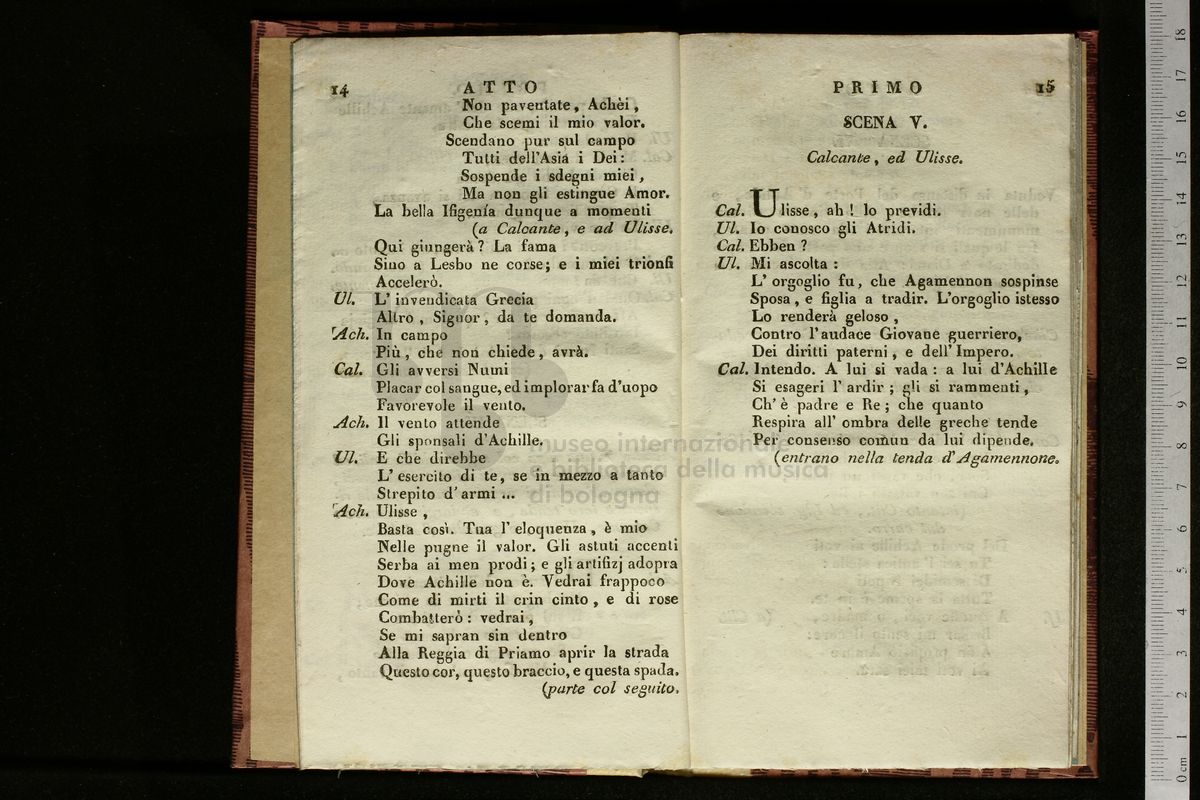 14 ATTO
Non paventate, Achèi,
Che scemi il mio valor.
Scendano pur sul campo
Tutti dell'Asia i Dei:
Sospende i sdegni miei,
Ma non gli estingue Amor.
La bella Ifigenía dunque a momenti
(a Calcante, e ad Ulisse.
Qui giungerà? La fama
Sino a Lesbo ne corse; e i miei trionfi
Accelerò.
Ul. L' invendicata Grecia
Altro, Signor, da te domanda.
Ach. In campo
Più, che non chiede, avrà.
Cal. Gli avversi Numi
Placar col sangue, ed implorar fa d'uopo
Favorevole il vento.
Ach. Il vento attende
Gli sponsali d'Achille.
Ul. E che direbbe
L' esercito di te, se in mezzo a tanto
Strepito d' armi ...
Ach. Ulisse,
Basta così. Tua l' eloquenza, è mio
Nelle pugne il valor. Gli astuti accenti
Serba ai men prodi; e gli artifizj adopra
Dove Achille non è. Vedrai frappoco
Come di mirti il crin cinto, e di rose
Combatterò: vedrai,
Se mi sapran sin dentro
Alla Reggia di Priamo aprir la strada
Questo cor, questo braccio, e questa spada.
(parte col seguito.
PRIMO 15
SCENA V.
Calcante, ed Ulisse.
Cal. Ulisse, ah! lo previdi.
Ul. Io conosco gli Atridi.
Cal. Ebben?
Ul. Mi ascolta:
L' orgoglio fu, che Agamennon sospinse
Sposa, e figlia a tradir. L'orgoglio istesso
Lo renderà geloso,
Contro l'audace Giovane guerriero,
Dei diritti paterni, e dell' Impero.
Cal. Intendo. A lui si vada: a lui d'Achille
Si esageri l' ardir; gli si rammenti,
Ch' è padre e Re; che quanto
Respira all' ombra delle greche tende
Per consenso comun da lui dipende.
(entrano nella tenda d' Agamennone.
museo internazionale
e biblioteca della musica
di bologna
0 cm 1 2 3 4 5 6 7 8 9 10 11 12 13 14 15 16 17 18